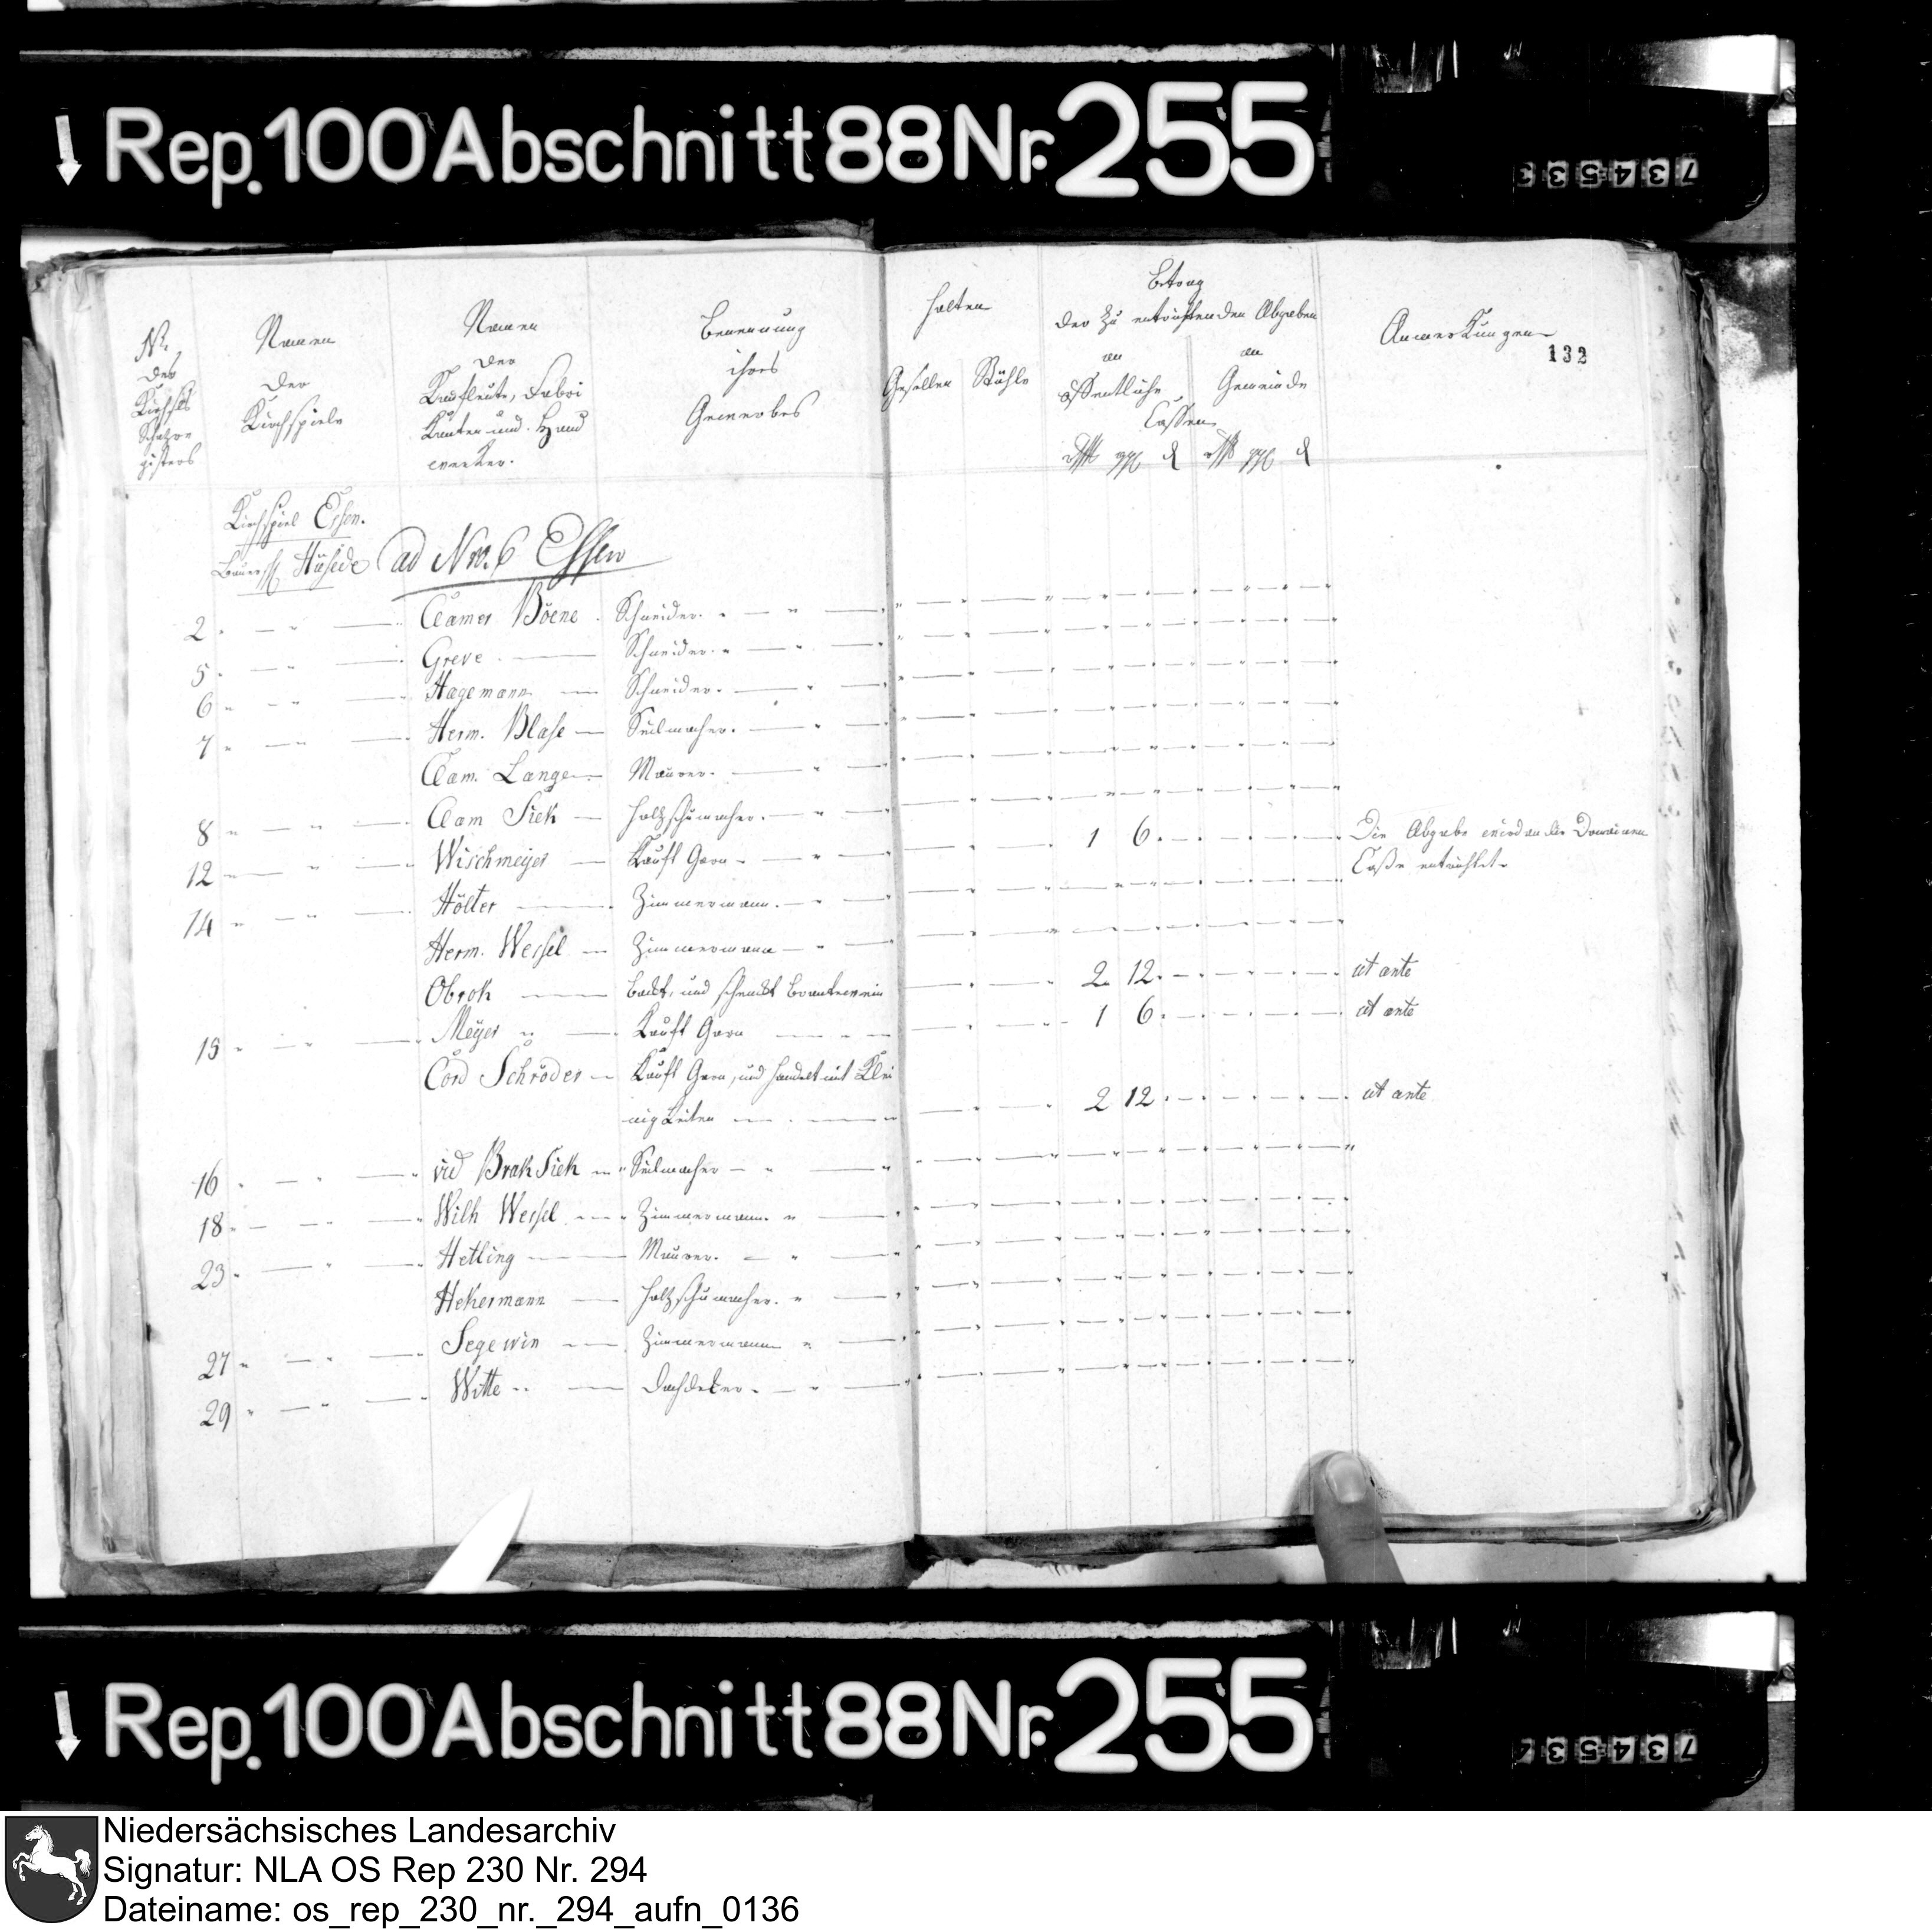 Rep. 100 Abschnitt 88 Nr. 255
734533
No. der Kirchspls Schatzregisters
Namen der Kirchspiele
Namen der Kaufleute, Fabri
kanten und Hand
werker.
Benennung ihres Gewerbes
Halten
Gesellen Stühle
Betrag
der zu entrichtenden Abgaben
an öffentliche
an Gemeinde
Cassen
Anmerkungen
132
Kirchspiel Essen.
Bauersch Hüsede ad Nro. 6 Essen
2 Clamor Böene Schneider.
5 Greve Schneider.
6 Hagemann Schneider.
7 Herm. Blase Seilmacher.
Clam. Lange Maurer.
8 Clam Siek Holzschumacher.
12 Wischmeyer Kauft Garn 1 6 Die Abgabe wird an die Domainen
Casse entrichtet
14 Hölter Zimmermann.
Herm. Wessel Zimmermann
Obrok backt, und schenckt Brantewein 2 12 ut ante
15 Meyer Kauft Garn 1 6 ut ante
Cord Schröder Kauft Garn, und handelt mit Klei
nigkeiten 2 12 ut ante
16 vid Brak Siek Seilmacher
18 Wilh Wessel Zimmermann
23 Hetling Maurer.
Hekermann Holzschumacher.
27 Segewin Zimmermann
29 Witte Dachdeker.
Rep. 100 Abschnitt 88 Nr. 255
734534
Niedersächsisches Landesarchiv
Signatur: NLA OS Rep 230 Nr. 294
Dateiname: os_rep_230_nr._294_aufn_0136